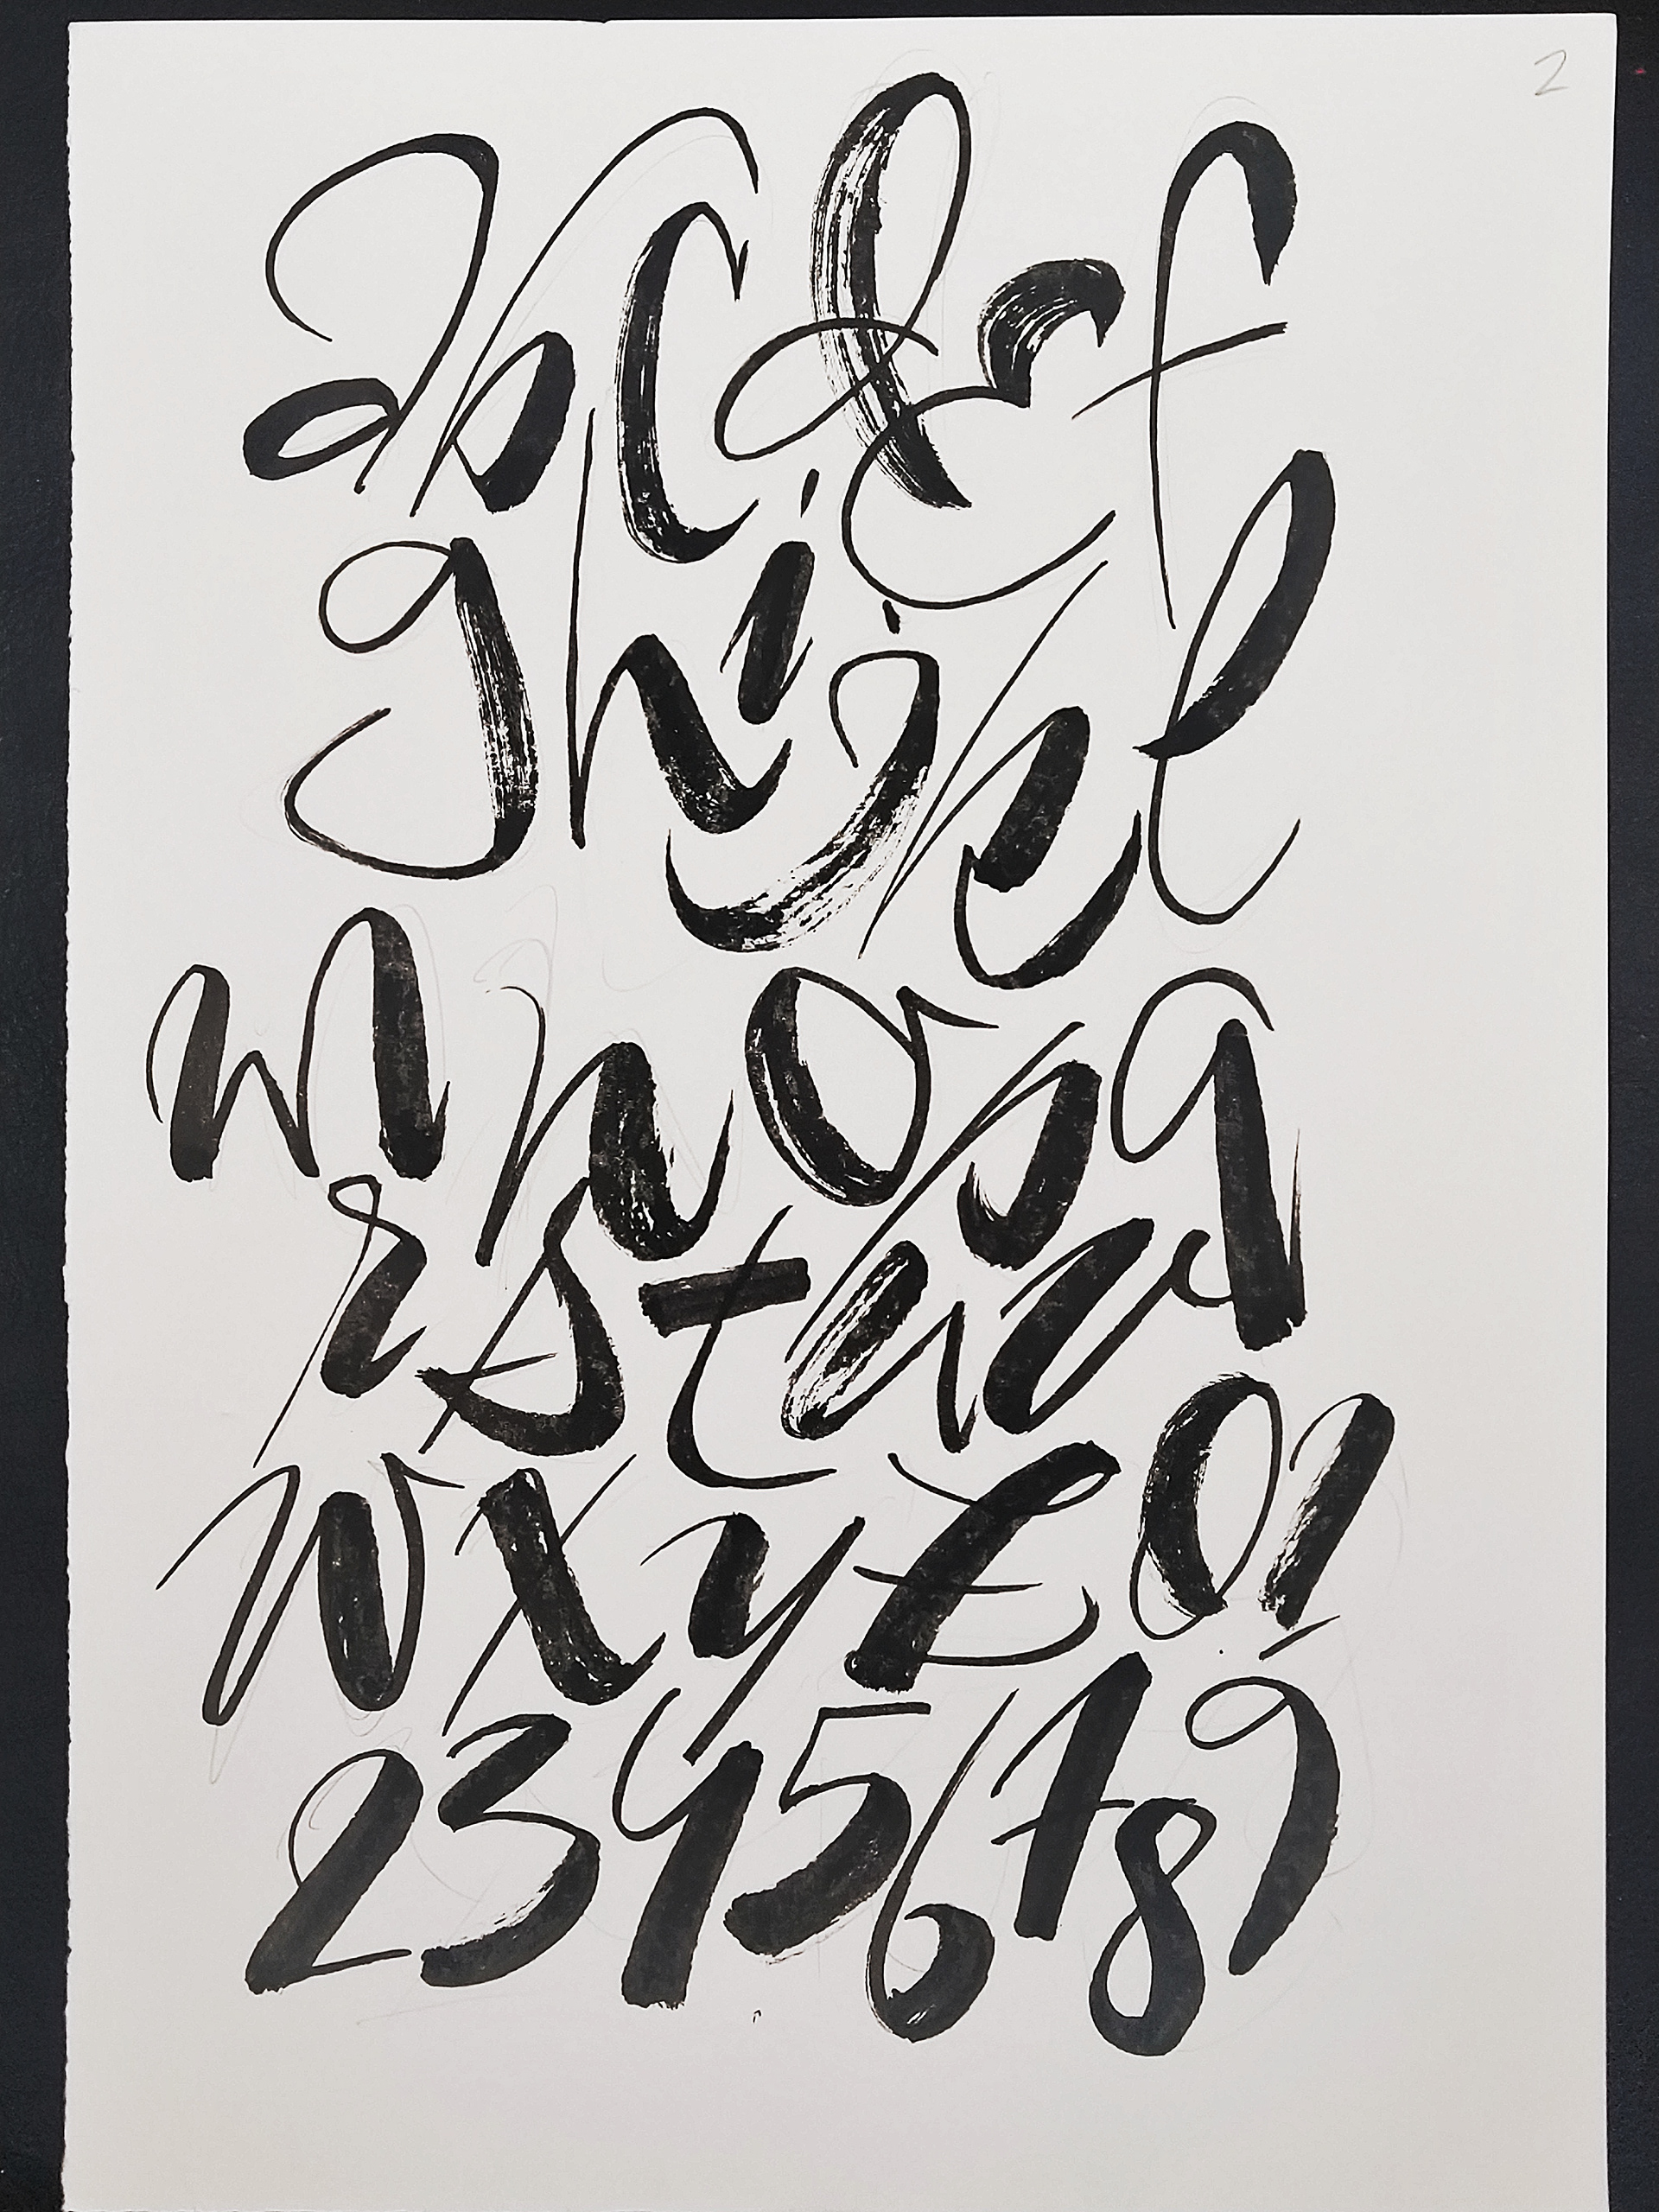 2
abcdef
ghijkl
mnopq
rstuv
wxyz01
23456789